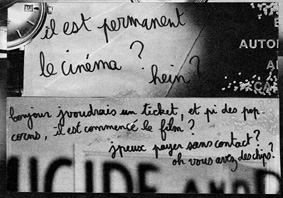 il est permanent
le cinéma ? hein ?
AUTO
bonjour jvoudrais un ticket, et pi des pop
corns, il est commencé le film ?
jpeux payer sans contact ?
oh vous avez des chips ?
ICIDE